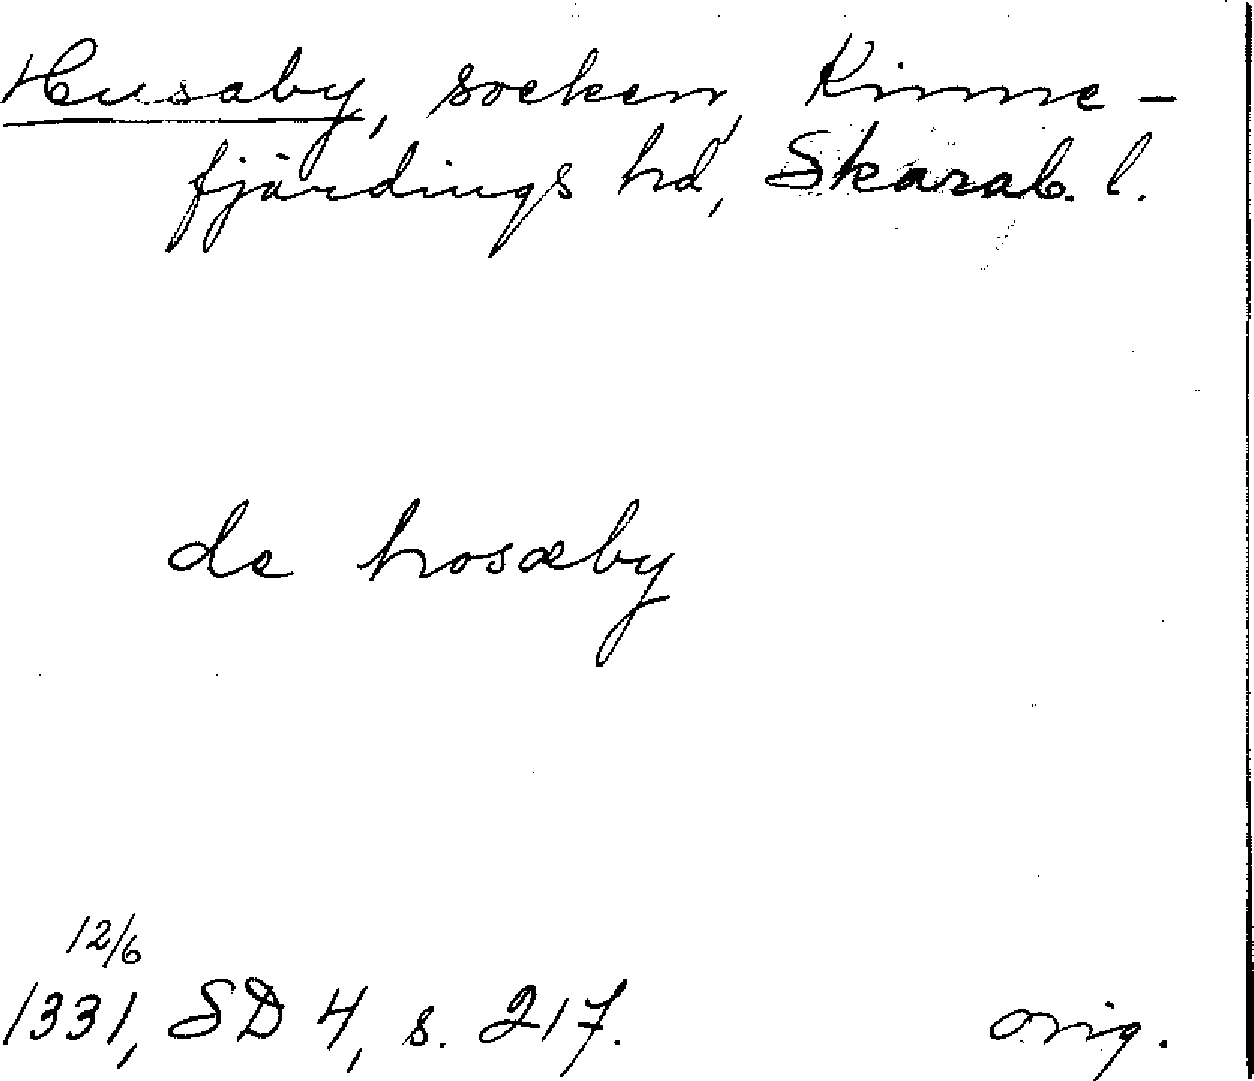 Husaby, socken, Kinne-
fjärdings hd, Skarab. l.
de hosæby
12/6
1331, SD 4, s. 217. orig.